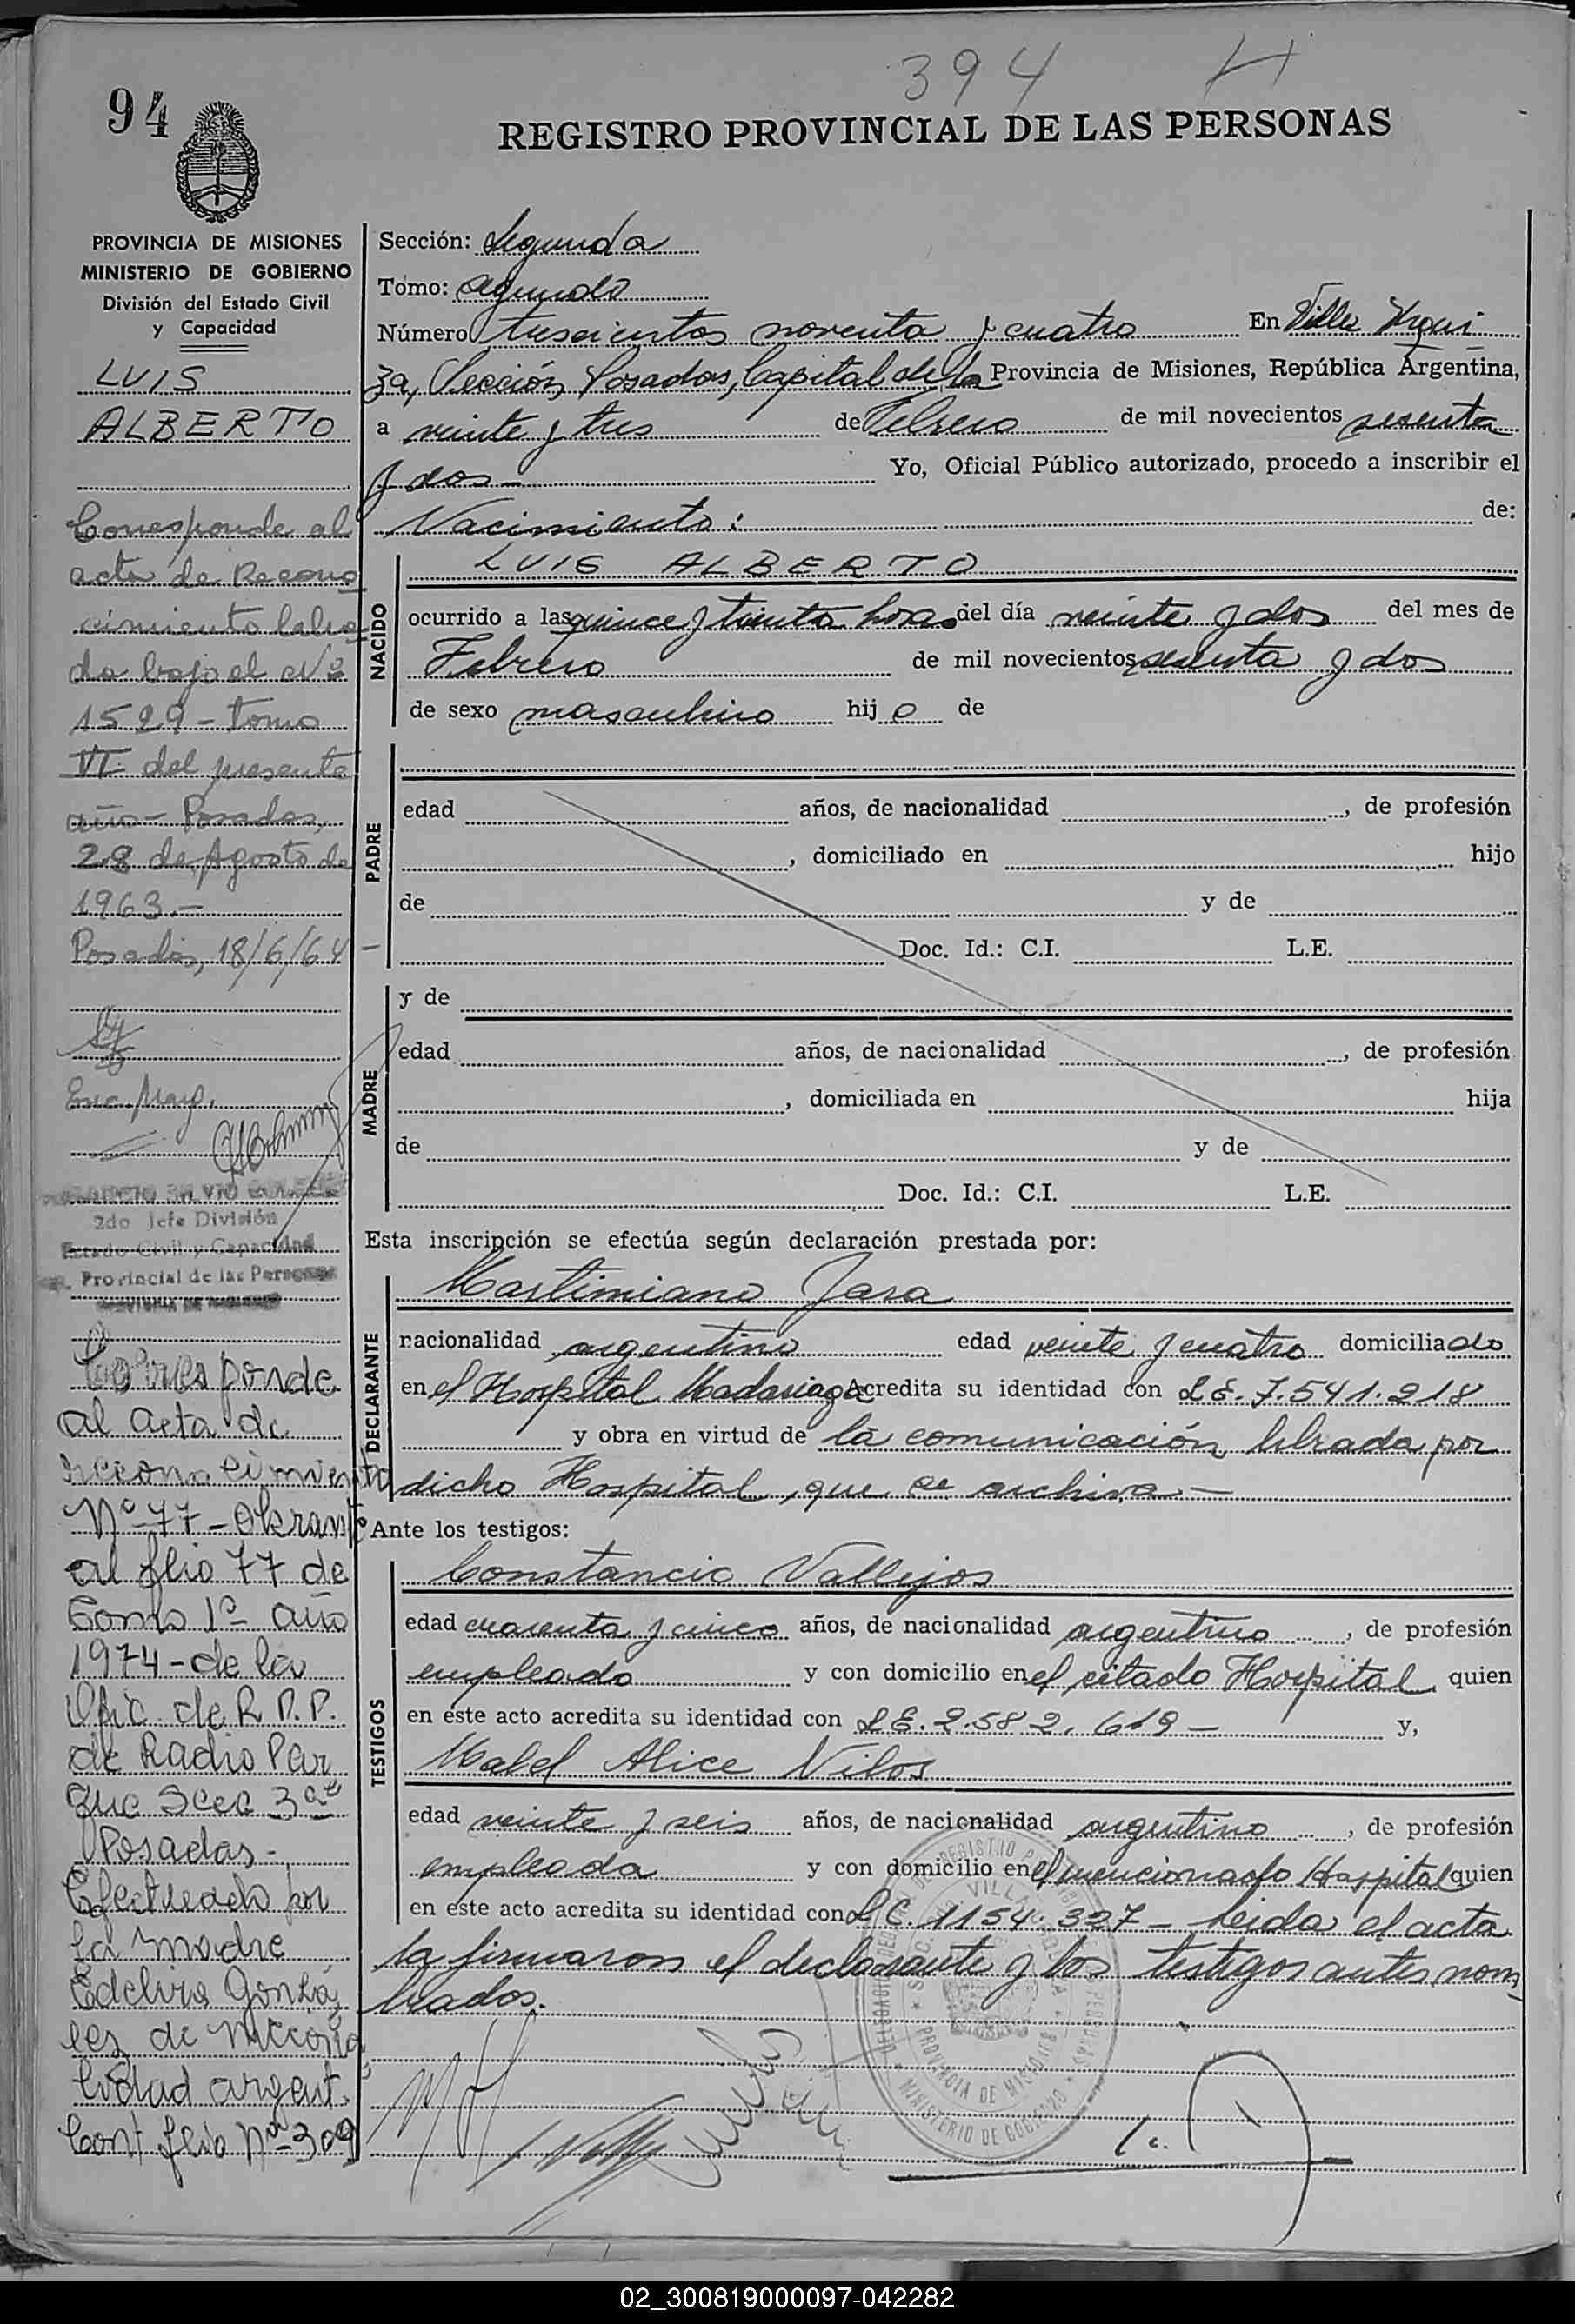 394
94
REGISTRO PROVINCIAL DE LAS PERSONAS
PROVINCIA DE MISIONES
MINISTERIO DE GOBIERNO
División del Estado Civil
y Capacidad
LUIS
ALBERTO
Corresponde al
acta de Recono
cimiento labra
da bajo el Nº
1529 - Tomo
VI del presente
año - Posadas,
28 de Agosto de
1963.-
Posadas, 18/6/64
Enc. Marg.
2do Jefe División
Estado Civil y Capacidad
Provincial de las Personas
Corresponde
al acta de
reconocimiento
Nº 77 - Obrante
al flio 77 de
Tomo 1º año
1974 - de la
Ofic. de R.P.P.
de Radio Par
que Scca 3ª
Posadas -
Efectuado por
la madre
Edelira Gonzá
lez de
argent.
Cont flio Nº 309
Sección: Segunda
Tomo: segundo
Número trescientos noventa y cuatro En Villa
3a, Sección, Posadas, Capital de la Provincia de Misiones, República Argentina,
a veinte y tres de Febrero de mil novecientos sesenta
y dos - Yo, Oficial Público autorizado, procedo a inscribir el
Nacimiento: de:
NACIDO
LUIS ALBERTO
ocurrido a las quince y treinta horas del día veinte y dos del mes de
Febrero de mil novecientos sesenta y dos
de sexo masculino hij o de
PADRE
edad años, de nacionalidad , de profesión
, domiciliado en hijo
de y de
Doc. Id.: C.I. L.E.
MADRE
y de
edad años, de nacionalidad , de profesión
, domiciliada en hija
de y de
Doc. Id.: C.I. L.E.
Esta inscripción se efectúa según declaración prestada por:
DECLARANTE
Martimiano Jara
nacionalidad argentino edad veinte y cuatro domiciliado
en el Hospital Madariaga Acredita su identidad con L.E. 7.541.218
y obra en virtud de la comunicación librada por
dicho Hospital, que se archiva -
Ante los testigos:
TESTIGOS
Constancio Vallejos
edad cuarenta y cinco años, de nacionalidad argentino , de profesión
empleado y con domicilio en el citado Hospital quien
en este acto acredita su identidad con L.E. 2.582.619 - y,
Mabel Alice Vilos
edad veinte y seis años, de nacionalidad argentino , de profesión
empleada y con domicilio en el mencionado Hospital quien
en este acto acredita su identidad con L.C. 1154.327 - Leida el acta
la firmaron el declarante y los testigos antes nom
brados.
PROVINCIA DE MISIONES
MINISTERIO DE GOBIERNO
02_300819000097-042282